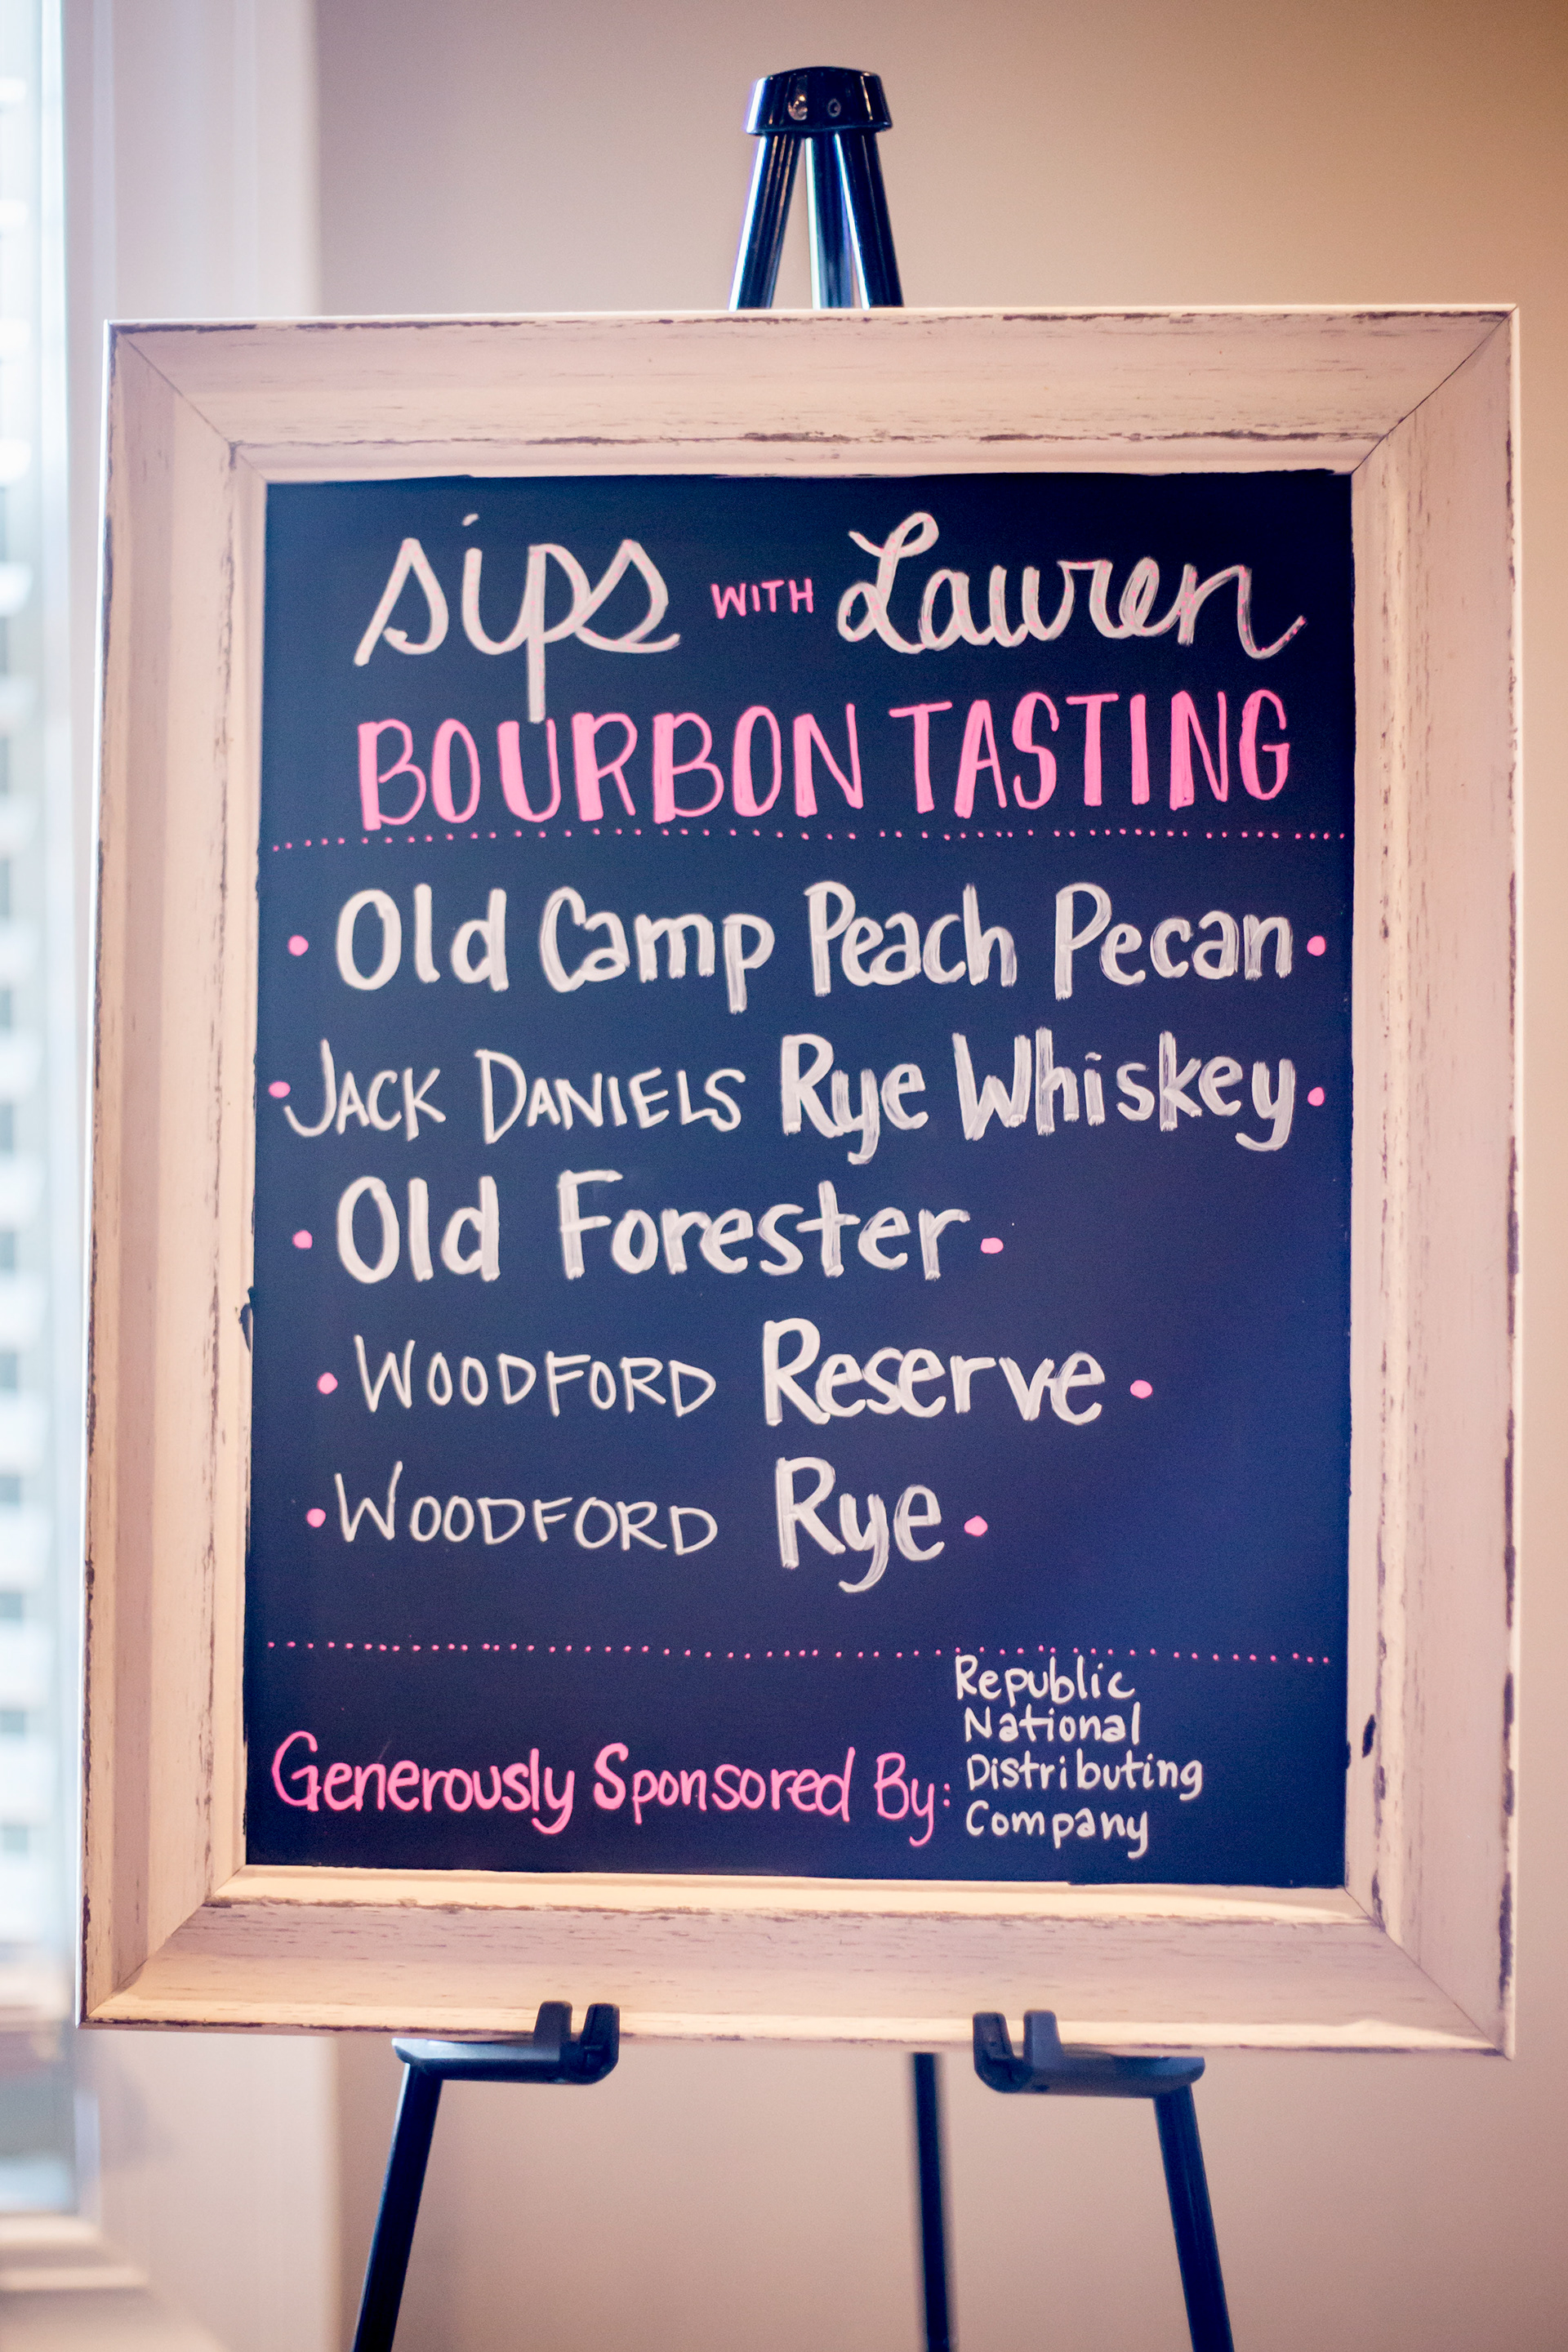 sips WITH Lauren
BOURBON TASTING
• Old Camp Peach Pecan •
• JACK DANIELS Rye Whiskey •
• Old Forester •
• WOODFORD Reserve •
• WOODFORD Rye •
Generously Sponsored By:
Republic
National
Distributing
Company